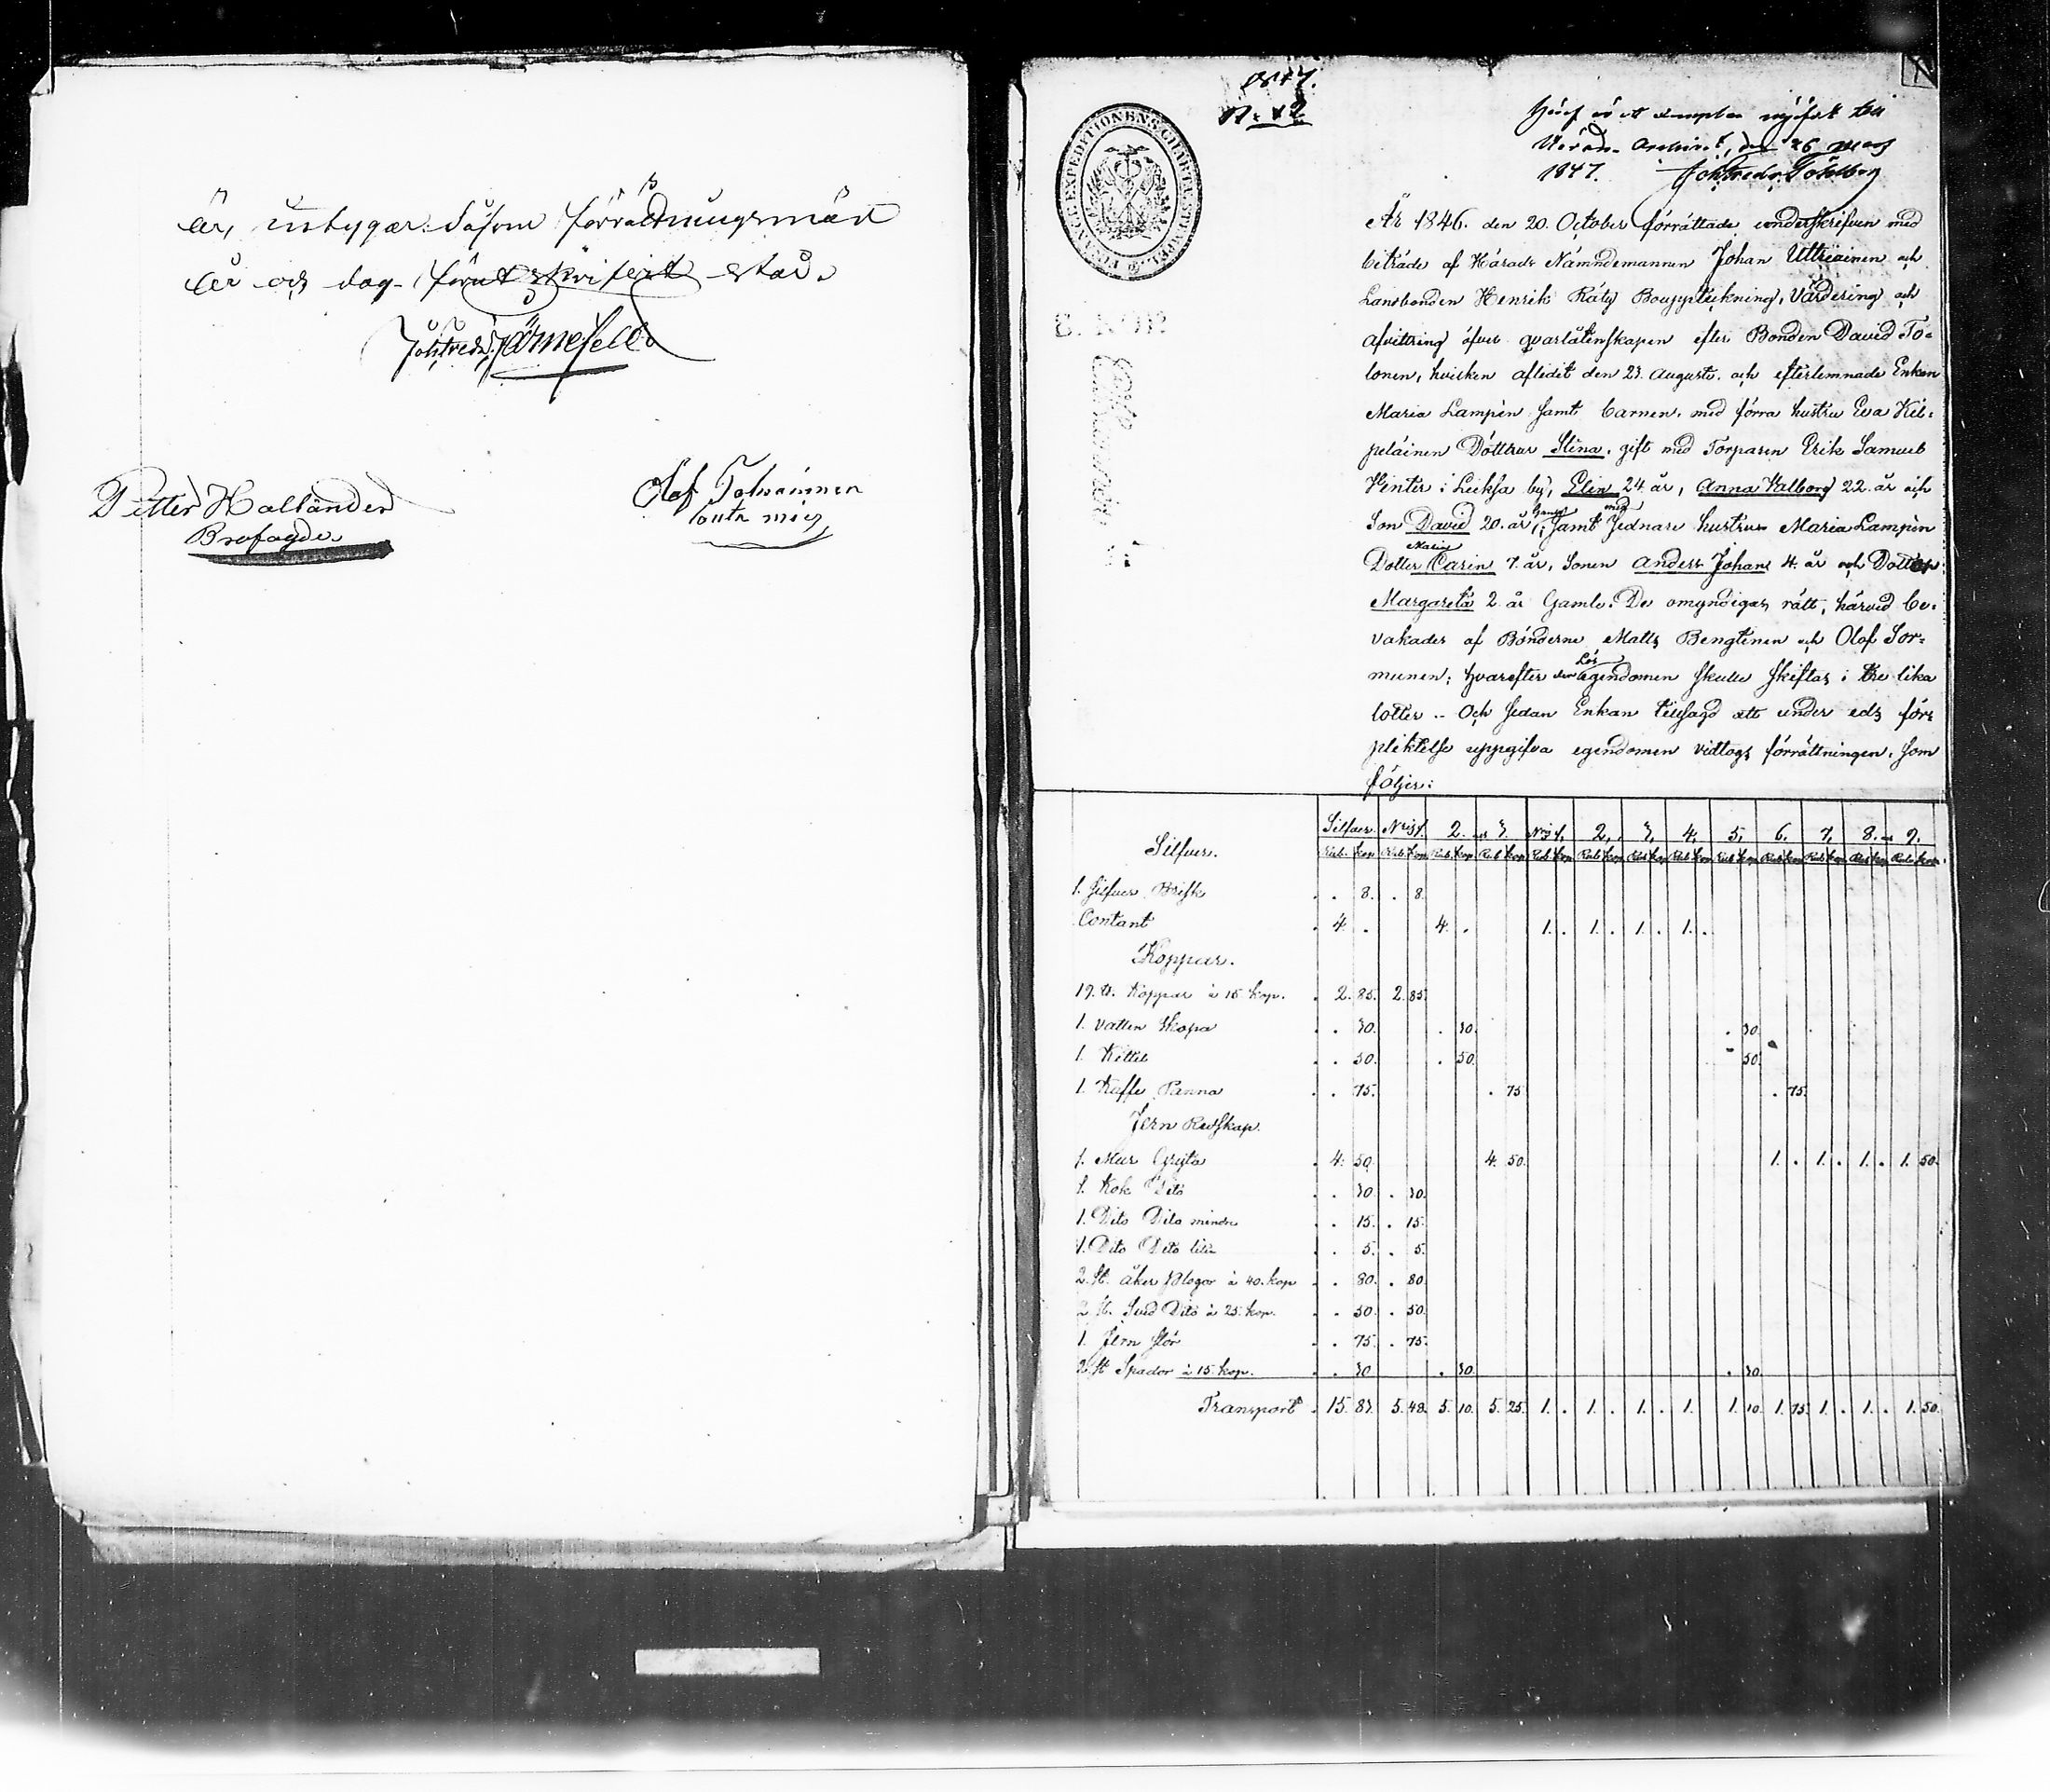 är, intygar såsom förrättningsmän
år och dag förutskrifvit står.
Joh: Fredr: Järnefelt
Petter Holländer
Brofogde
Olof Tolvainen
1847.
N: 42
FINANCE EXPEDITIONENS CHARTÆ STEMPEL
Häraf är ett exemplar till
Härads Archivet, den 26 Mars
1847. Joh Fredr:
År 1846. den 20. October förrättade underskrifven med
biträde af Härads Nämndemannen Johan Uttriainen och
Lansbonden Henrik Räty Bouppteckning, Värdering och
afvittring öfver qvarlåtenskapen efter Bonden David To-
lonen, hvilken aflidit den 23. Augusti. och efterlemnade Enkan
Maria Lampén samt barnen, med förra hustru Eva Kil-
peläinen Döttrar Stina, gift med Torparen Erik Samuel
Henter i Lieksa by, Elin 24 år, Anna Valborg 22 år och
Son David 20. år, samt med sednare hustrun Maria Lampén
Dotter Maria Carin 7. år, Sonen Anders Johan 4. år och Dotter
Margareta 2 år Gamle. De omyndigas rätt, härvid be-
vakades af Bönderne Matts Bengtinen och Olof Sor-
munen; hvarefter Lös egendomen skulle skiftas i tre lika
lotter .. Och sedan Enkan tillsagd att under eds för-
pliktelse uppgifva egendomen vidtogs förrättningen, som
följer:
Silfver. Silfver. N:o 1. 2. 3. N:o 1. 2. 3. 4. 5. 6. 7. 8. 9.
Rub. Kop. Rub. Kop. Rub. Kop. Rub. Kop. Rub. Kop. Rub. Kop. Rub. Kop. Rub. Kop. Rub. Kop. Rub. Kop. Rub. Kop. Rub. Kop. Rub. Kop.
1. Silfver Brisk . . 8. . 8.
Contant . 4. . 4. . 1. . 1. . 1. . 1. .
Koppar.
19. ℔. Koppar à 15 kop. . 2. 85. 2. 85.
1. Vatten Skopa . . 30. . 30. . 30.
1. Kettil . . 50. . 50. . 50.
1. Kaffe Panna . . 75. . 75. . 75.
Jern Redskap.
1. Mur Gryta . 4. 50. 4. 50. 1. . 1. . 1. . 1. 50.
1. Kok Dito . . 30. . 30.
1. Dito Dito mindre . . 15. . 15.
1. Dito Dito liten . . 5. . 5.
2. st. åker Plogar à 40. kop . . 80. . 80.
2 st. Sved Dito à 25. kop. . . 50. . 50.
1. Jern Stör . . 75. . 75.
2. st Spador à 15. kop. . . 30 . 30. . 30.
Transport . 15. 83. 5. 48. 5. 10. 5. 25. 1. . 1. . 1. . 1. 1. 10. 1. 75. 1. . 1. . 1. 50.